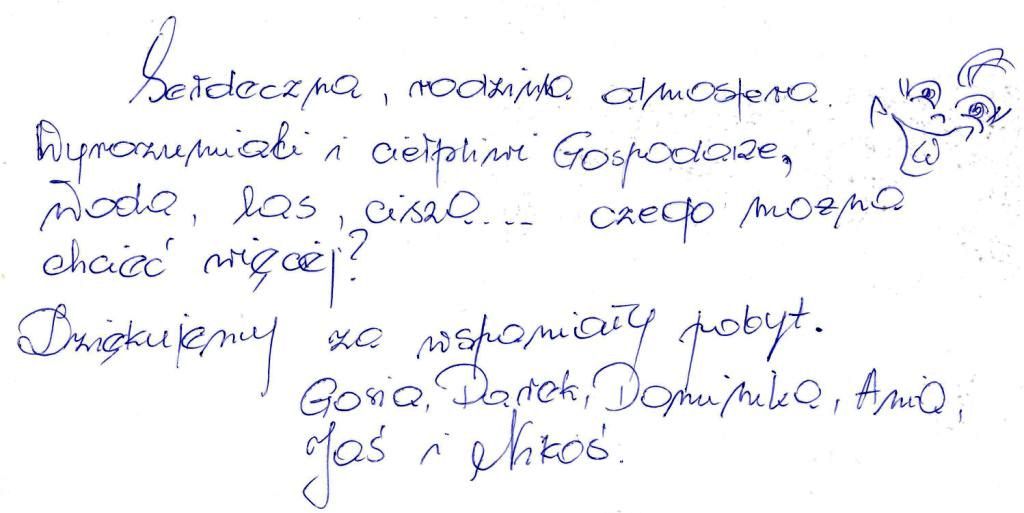 Serdeczna, rodzinna atmosfera.
Wyrozumiali i cierpliwi Gospodarze,
Woda, las, cisza... czego można
chcieć więcej?
Dziękujemy za wspaniały pobyt.
Gosia, Darek, Dominika, Ania,
Jaś i Nikoś.